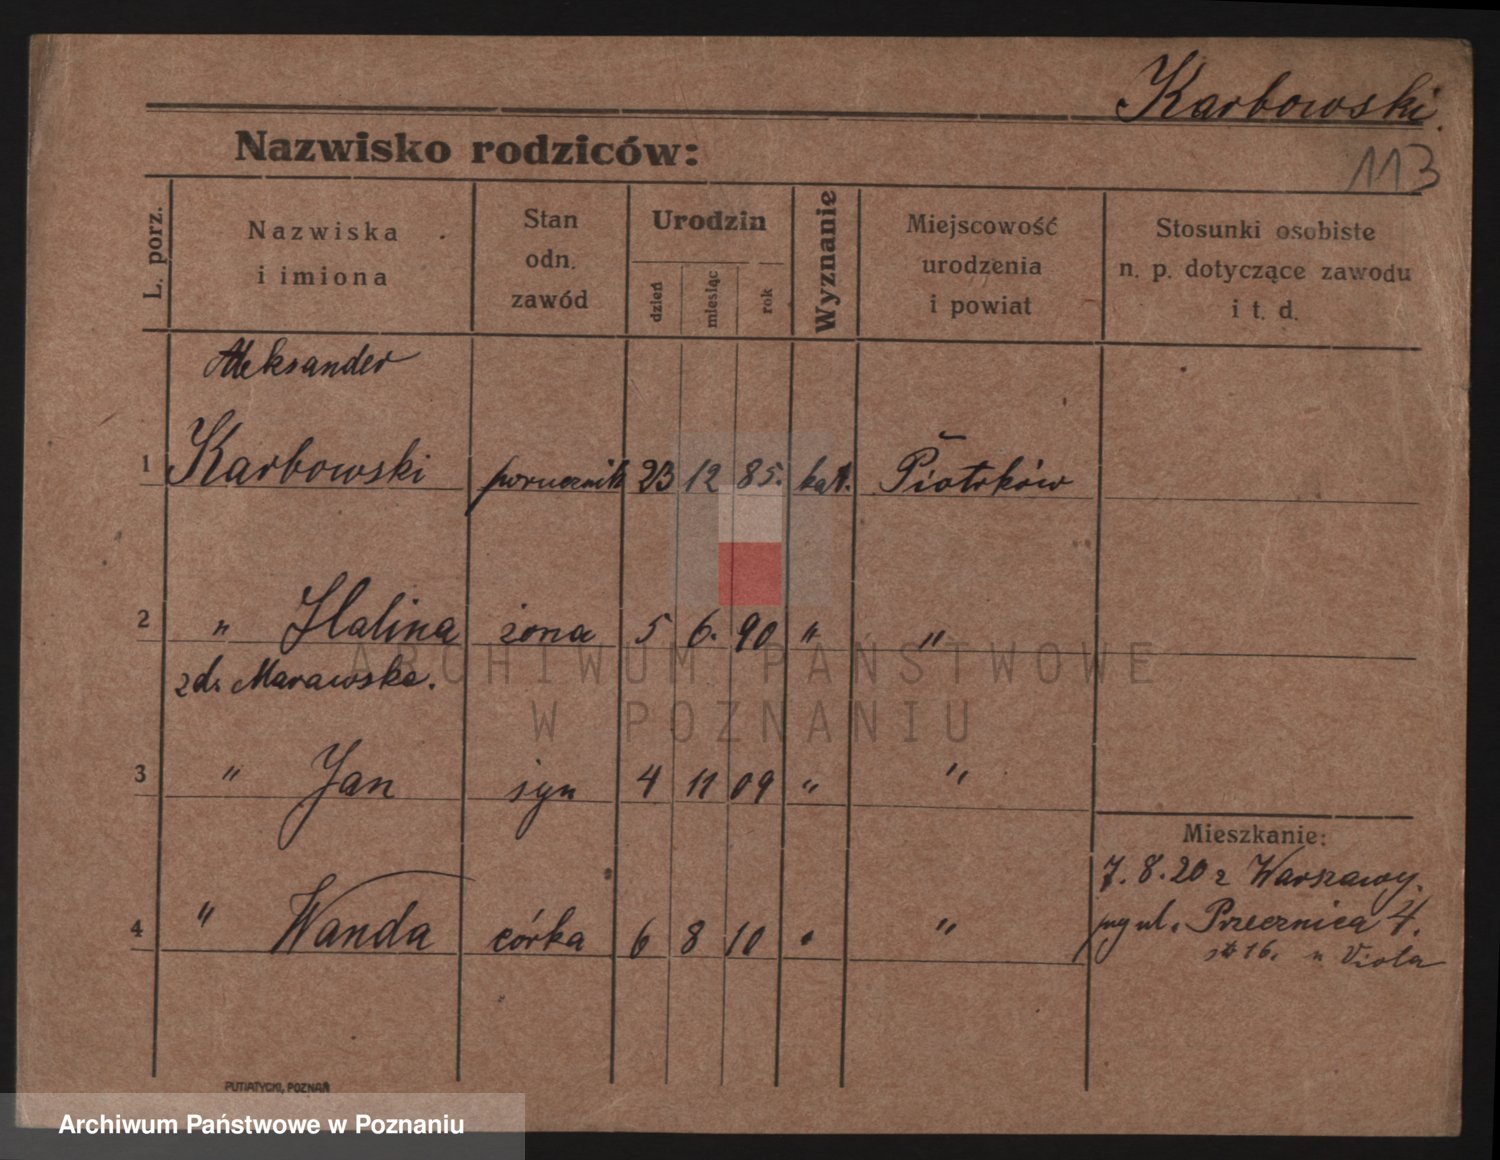 Karbowski.
Nazwisko rodziców:
113
L. porz.
Nazwiska
i imiona
Stan
odn.
zawód
Urodzin
dzień
miesiąc
rok
Wyznanie
Miejscowość
urodzenia
i powiat
Stosunki osobiste
n. p. dotyczące zawodu
i t. d.
Aleksander
1 Karbowski porucznik 23 12 85. kat. Piotrków
2 „ Halina żona 5 6. 90 „ „
zd. Marawska.
3 „ Jan syn 4 11 09 „ „
Mieszkanie:
7. 8. 20 z Warszawy.
4 „ Wanda córka 6 8 10 „
ul. Przecznica 4.
16. u Viola
PUTIATYCKI, POZNAŃ
ARCHIWUM PAŃSTWOWE
W POZNANIU
Archiwum Państwowe w Poznaniu